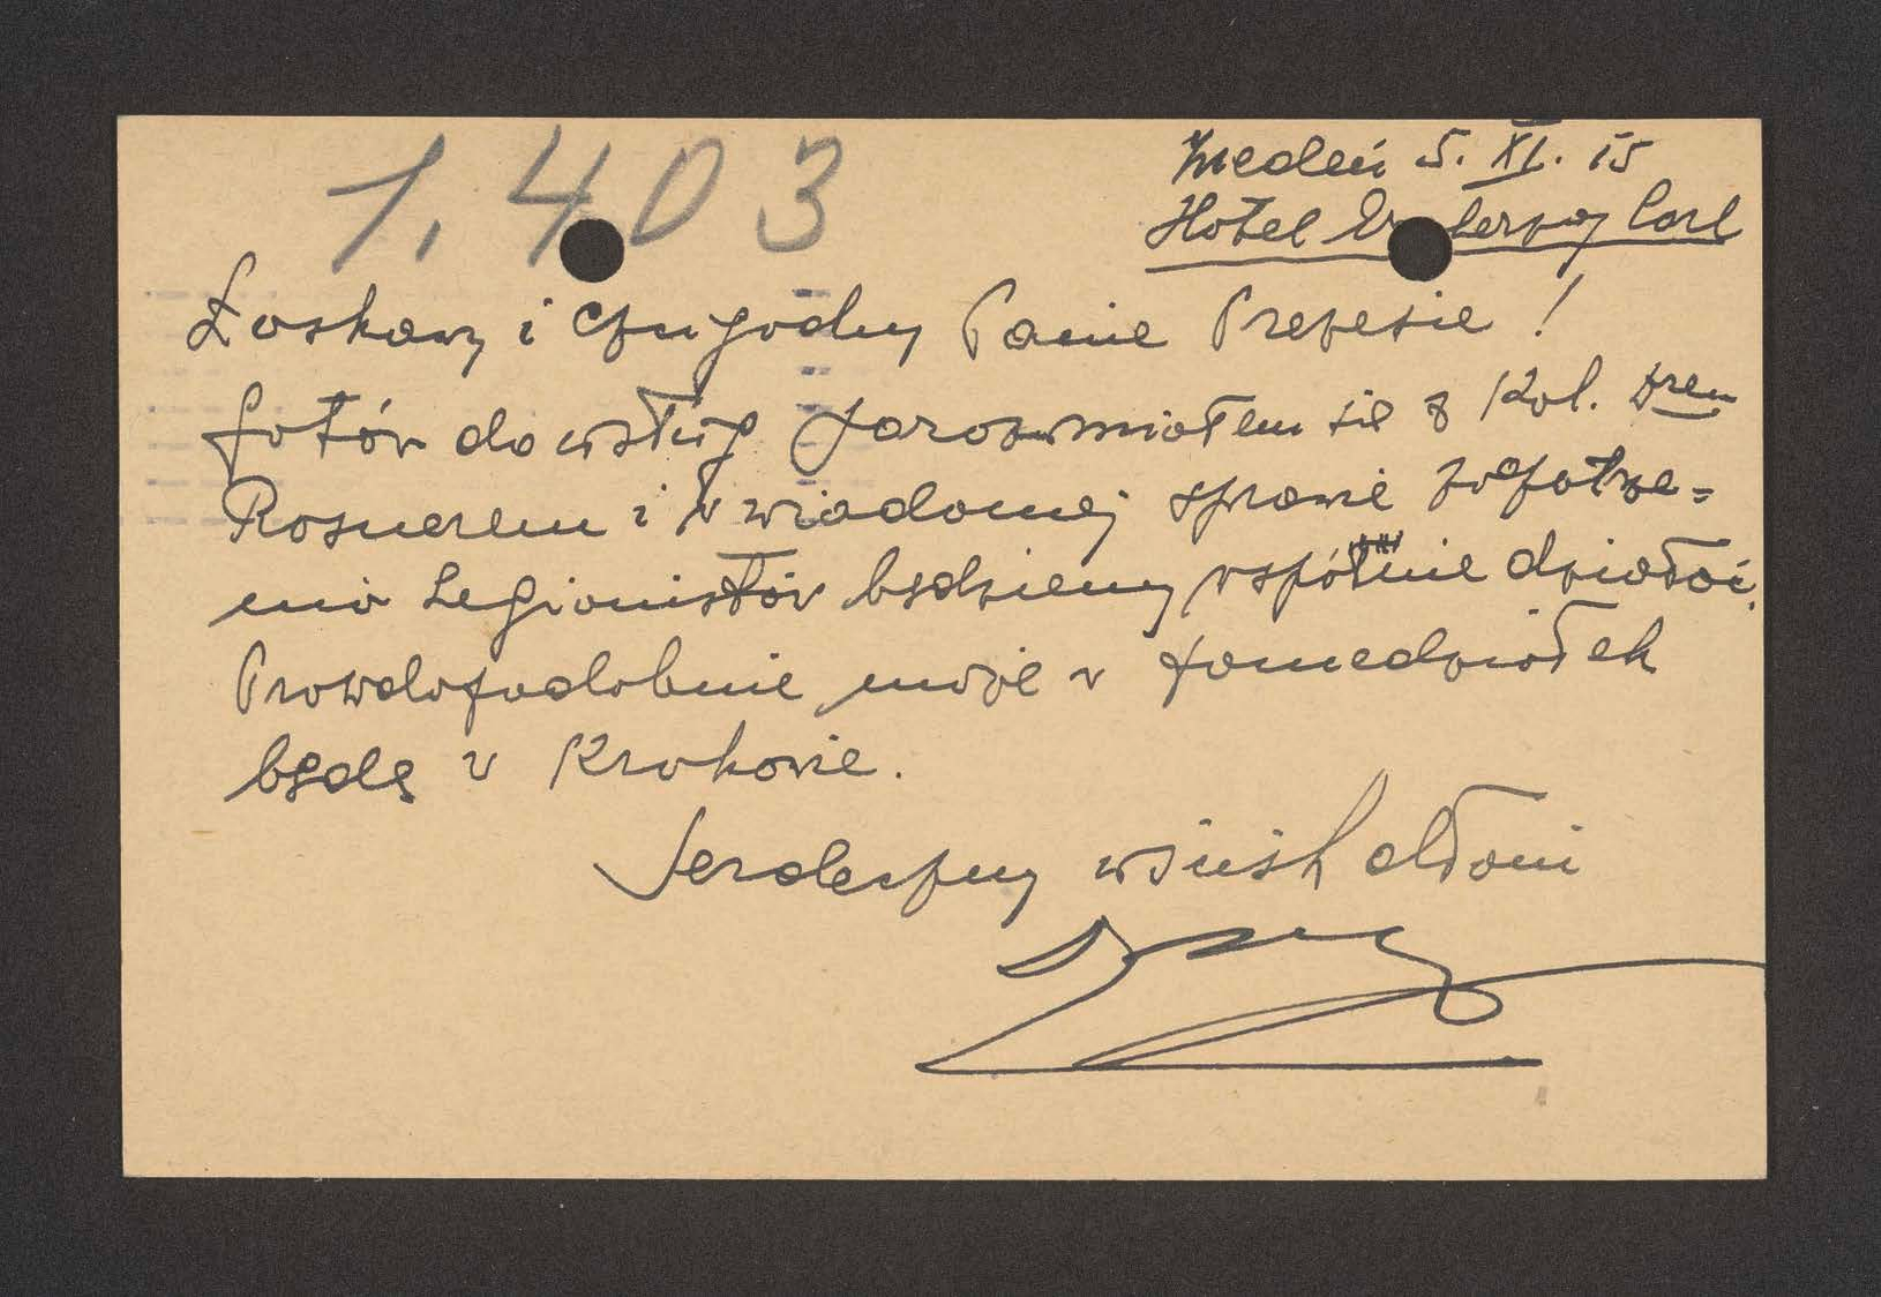 1.403
Wiedeń 5. XI. 15
Hotel Erzherzog Carl
Łaskawy i Czcigodny Panie Prezesie!
Gotów do usług porozumiałem się z Kol. Drem
Rosnerem i w wiadomej sprawie zaopatrze=
nia Legionistów będziemy wspólnie działać.
Prawdopodobnie może w poniedziałek
będę w Krakowie.
Serdeczny uścisk dłoni